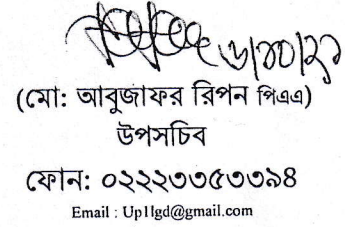 ৬/১০/২১
(মো: আবুজাফর রিপন পিএএ)
উপসচিব
ফোন: ০২২২৩৩৫৩৩৯৪
Email : Up1lgd@gmail.com